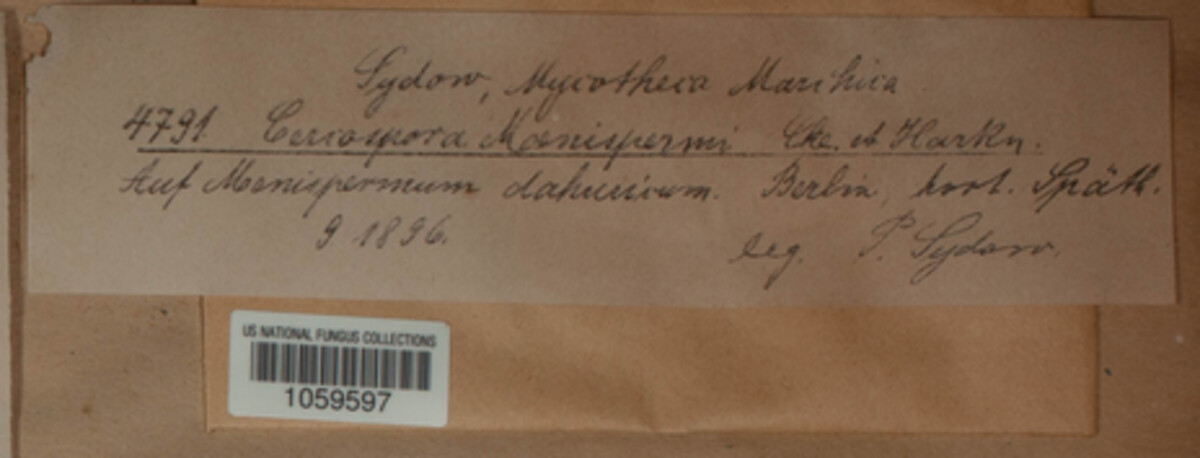 Sydow, Mycotheca Marchica
4791. Cercospora Menispermi Cke. et Harkn.
Auf Menispermum dahuricum. Berlin, hort. Späth.
9 1896. leg. P. Sydow.
US NATIONAL FUNGUS COLLECTIONS
1059597